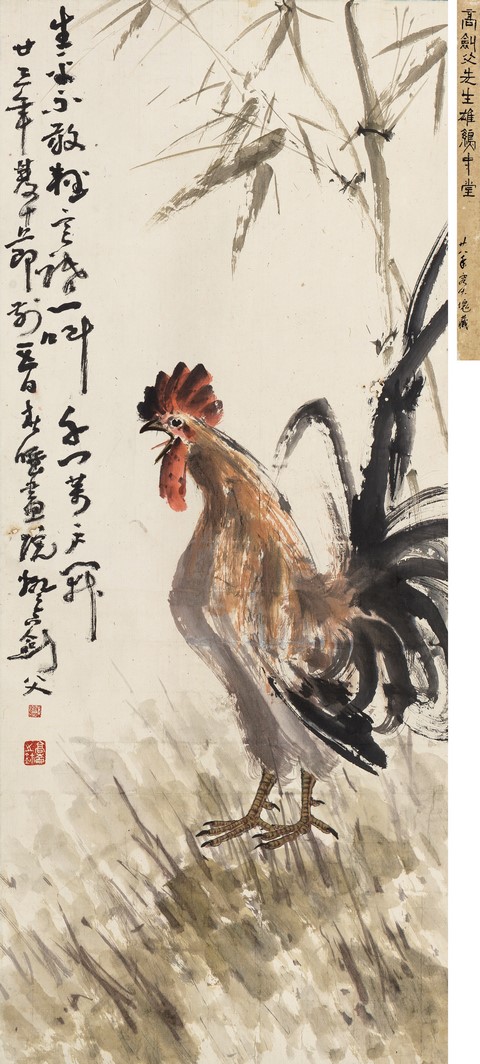 生平不敢輕言語一叫千門萬戶開
廿三年雙十節前日春睡畫院劍父
高劍父先生雄鷄中堂
廿八年藏